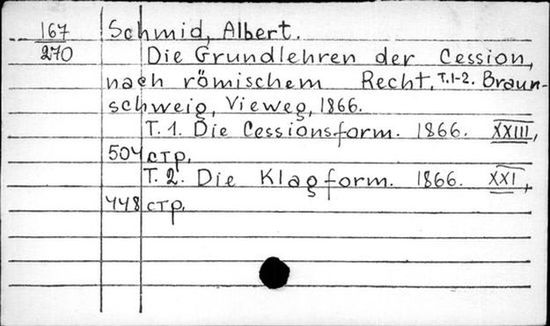 167 Schmid, Albert.
270 Die Grundlehren der Cession,
nach römischem Recht. T.1-2. Braun-
schweig, Vieweg, 1866.
T. 1. Die Cessionsform. 1866. XXIII,
504 стр.
T. 2. Die Klagform. 1866. XXI,
448 стр.